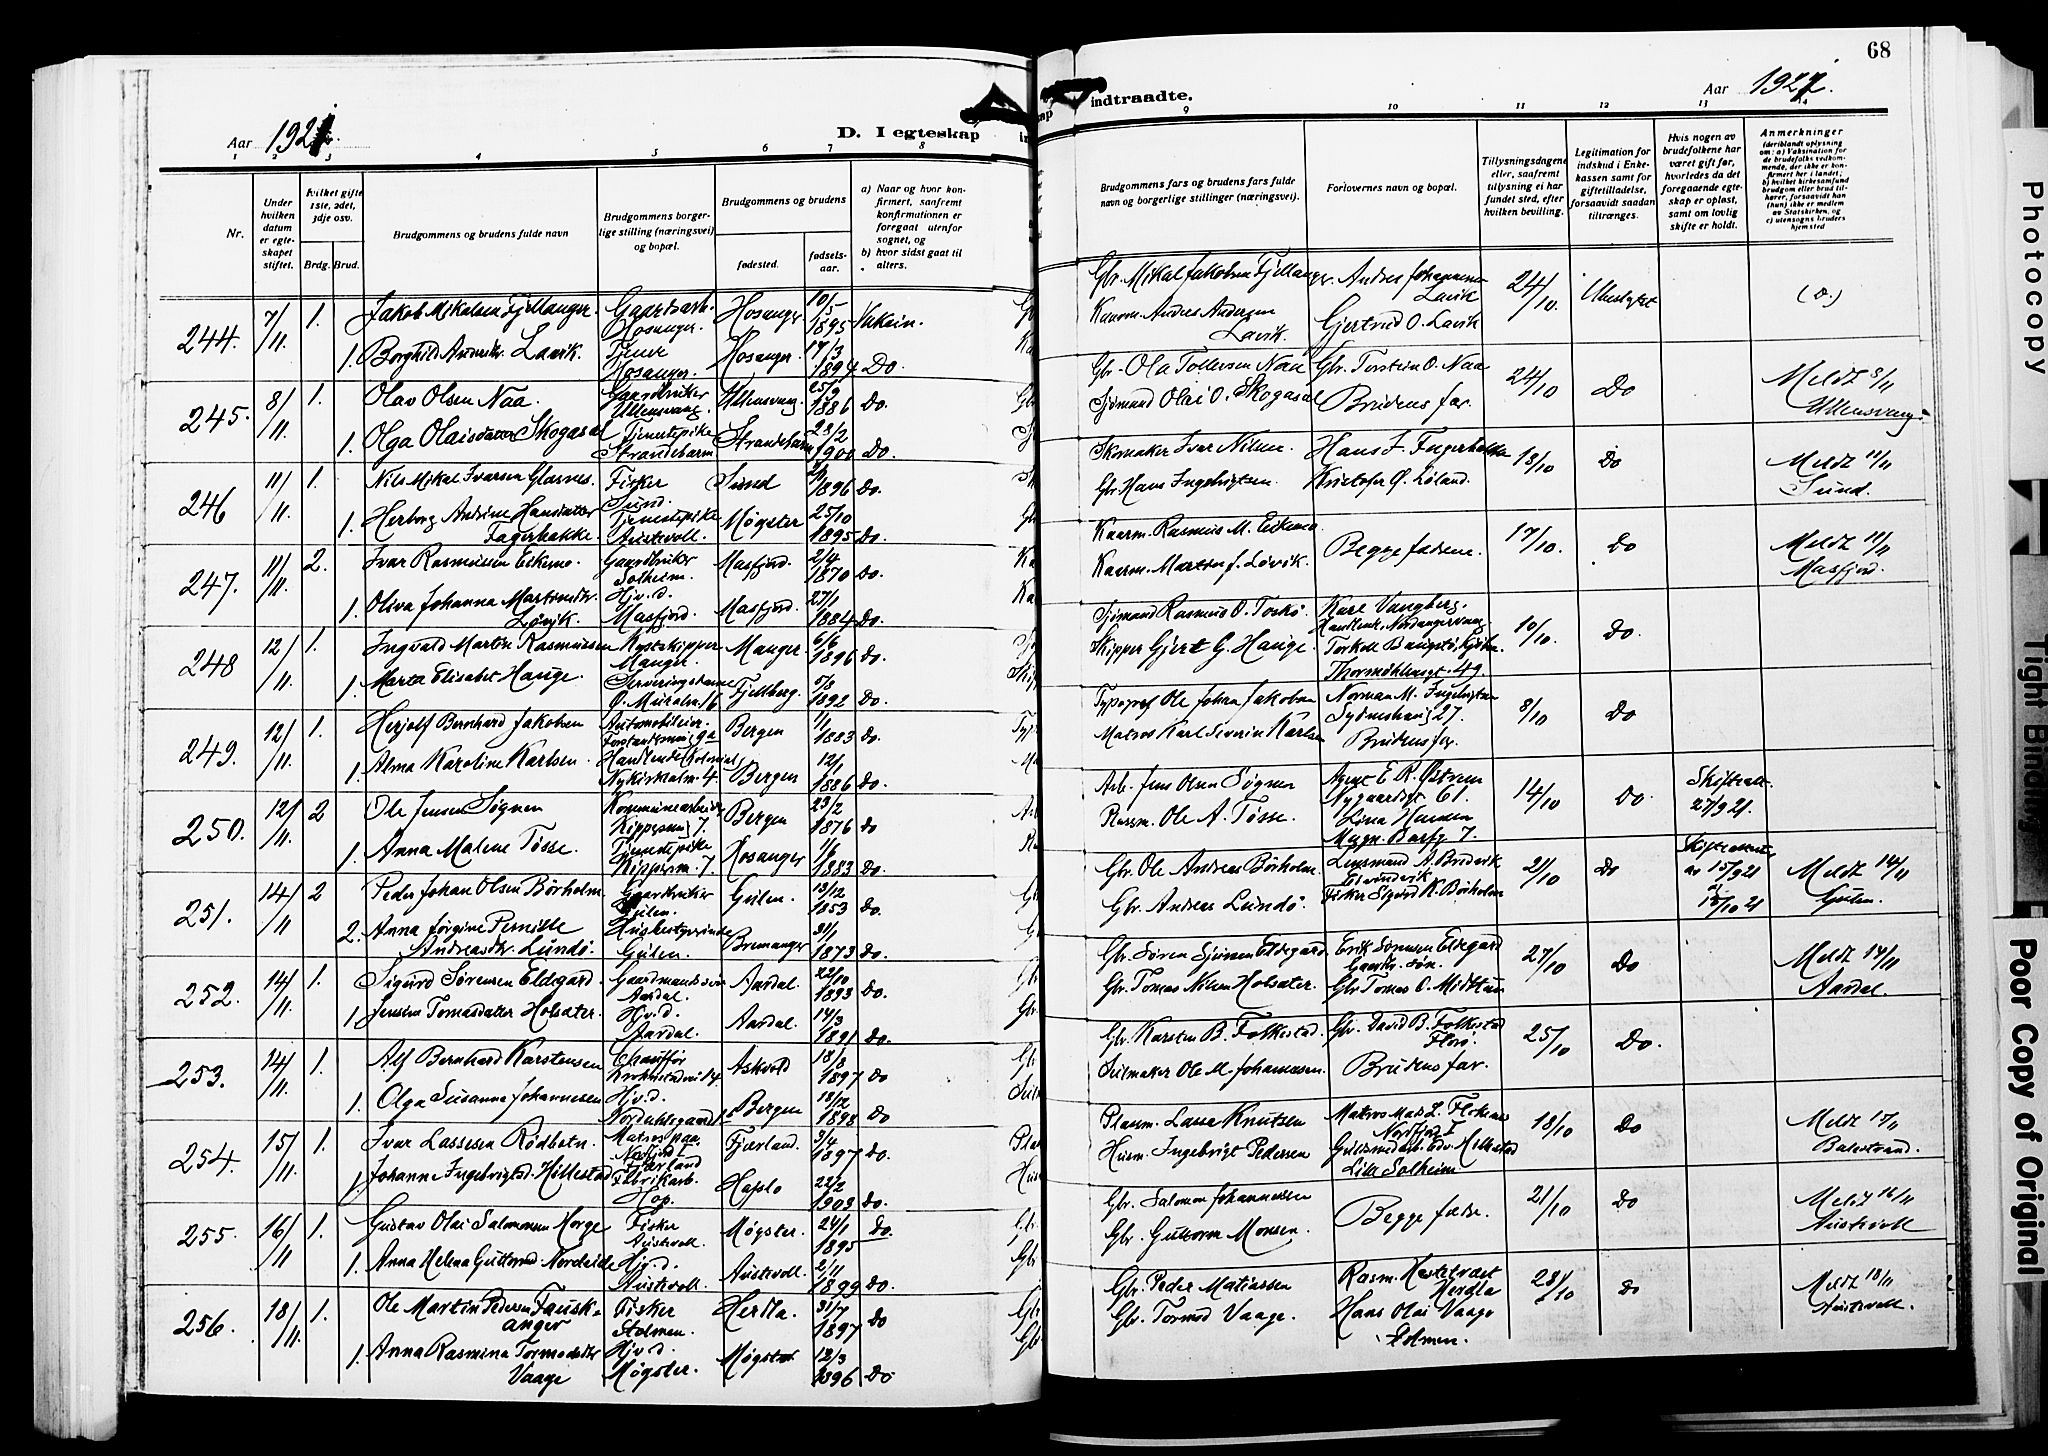 68
Aar 1921.
D. I egteskap
indtraadte.
Aar 1921.
1 2 3 4 5 6 7 8
9 10 11 12 13 14
Nr.
Under hvilken datum er egteskapet stiftet.
Hvilket gifte 1ste, 2det, 3dje osv.
Brdg. Brud.
Brudgommens og brudens fulde navn
Brudgommens borgerlige stilling (næringsvei) og bopæl.
Brudgommens og brudens
fødested.
fødselsaar.
a) Naar og hvor konfirmert, saafremt konfirmationen er foregaat utenfor sognet, og
b) hvor sidst gaat til alters.
Brudgommens fars og brudens fars fulde navn og borgerlige stillinger (næringsvei).
Forlovernes navn og bopæl.
Tillysningsdagene eller, saafremt tillysning ei har fundet sted, efter hvilken bevilling.
Legitimation for indskud i Enkekassen samt for giftetilladelse, forsaavidt saadan tiltrænges.
Hvis nogen av brudefolkene har været gift før, hvorledes da det foregaaende egteskap er opløst, samt om lovlig skifte er holdt.
Anmerkninger
(deriblandt oplysning om: a) Vaksination for de brudefolks vedkommende, der ikke er konfirmert her i landet; b) hvilket kirkesamfund brudgom eller brud tilhører, forsaavidt han (hun) ikke er medlem av Statskirken, og c) utensogns bruders hjemsted
244. 7/11 1. Jakob Mikalsen Fjellanger. Gaardsarb. Hosanger. Hosanger 10/5 1895
Gbr. Mikal Jakobsen Fjellanger. Andres Johannesen Lavik 24/10.
1. Borghild Andersdtr. Lavik. Tjener Hosanger. Hosanger. 17/3 1894 Do.
Kaarm. Andres Andersen Lavik. Gjertrud O. Lavik
245. 8/11. 1. Olav Olsen Naa. Gaardbruker Ullensvang. Ullensvang. 25/9 1886 Do.
Gbr. Ola Tollefsen Naa Gbr. Torstein O. Naa 24/10 Do Meldt 8/11 Ullensvang.
1. Olga Olaisdatter Skogasel Tjenestepike Strandebarm Strandebarm 23/2 1900 Do.
Sjømand Olai O. Skogasel Brudens far.
246 11/11. 1. Nils Mikal Ivarsen Glesnes. Fisker Sund. Sund 1896 Do.
Skomaker Ivar Nilsen. Hans J. Fagerbakke 18/10 Do Meldt 11/11 Sund.
1. Herborg Andrine Hansdatter Fagerbakke Tjenestepike Austevoll. Møgster 25/10 1895 Do.
Gbr. Hans Ingebrigtsen. Kristofer Ø. Løland.
247. 11/11. 2. Ivar Rasmussen Eikemo. Gaardbruker Solheim. Masfjord. 2/4 1870 Do.
Kaarm. Rasmus M. Eikemo. Begge fædrene. 17/10. Do Meldt 11/11 Masfjord.
1. Oliva Johanna Martinsdtr. Løvik. Hjv.d. Masfjord. Masfjord. 27/1 1884 Do.
Kaarm. Martin J. Løvik.
248 12/11. 1. Ingvald Martin Rasmussen Kystskipper Manger. Manger. 6/6 1896 Do.
Sjømand Rasmus O. Toskø. Karl Vangberg. 10/10. Do.
1. Marta Elisabet Hauge. Serveringsdame Ø. Muralm. 16 Fjellberg. 1892 Do.
Skipper Gjert G. Hauge. Thormøhlensgt. 49.
249. 12/11. 1. Herjolf Bernhard Jakobsen Automobileier. Bergen 1/1 1883 Do.
Typograf Ole Johan Jakobsen Norman M. Ingebrigtsen Sydneshaug 27. 8/10 Do
1. Alma Karoline Karlsen. Nykirkealm. 4 Bergen 12/1 1886 Do.
Matros Karl Severin Karlsen Brudens far.
250. 12/11. 2 Ole Jensen Søgnen Kommunearbeider Kippersmug 7. Bergen 23/2 1876 Do
Arb. Jens Olsen Søgnen Agent E. R. Østrem Nygaardsgt. 61. 14/10 Do. Skifteatt. 27/9 21.
1. Anna Malene Tøsse. Tjenestepike Kippersm. 7. Hosanger 1/6 1883 Do.
Kaarm. Ole A. Tøsse. Lina Hansen Magn. Barfg. 7.
251. 14/11 2 Peder Johan Olsen Børholm. Gaardbruker Gulen. Gulen. 13/12 1853 Do.
Gbr. Ole Andreas Børholm. Lensmand A. Brudevik 21/10 Do Skifteattester av 15/9 21 Meldt 14/11 Gulen.
2. Anna Jørgine Pernille Andreasdtr. Lundø. Husbestyrerinde Gulen. Bremanger 31/1 1873 Do.
Gbr. Andreas Lundø. Fisker Sigurd K. Børholm
252. 14/11. 1. Sigurd Sørensen Eldegard. Gaardmandssøn Aardal. Aardal. 22/10 1893 Do.
Gbr. Søren Sjursen Eldegard Erik Sørensen Eldegard Gaardbr. søn. 27/10 Do Meldt 14/11 Aardal.
1 Jensine Tomasdatter Holsæter. Hjv.d. Aardal. Aardal. 14/3 1891 Do.
Gbr. Tomas Nilsen Holsæter. Gbr. Tomas O. Midttun
253. 14/11. 1. Alf Bernhard Karstensen Chauffør Askvold 18/8 1897 Do
Gbr. Karsten B. Folkestad. Gbr. David B. Folkestad Florø. 25/10 Do.
1. Olga Susanna Johannesen Hjv.d. Bergen 18/12 1898 Do
Seilmaker Ole M. Johannesen. Brudens far.
254. 15/11. 1. Ivar Lassesen Rødbotn. Matros paa Nordfjord I Fjærland Fjærland. 3/4 1897 Do.
Plassm. Lasse Knutsen Nordfjord I 18/10 Do Meldt 15/11 Balestrand.
1. Johanne Ingebrigtsd. Hillestad Fabrikarb. Hop. Hafslo 22/2 1903 Do.
Husm. Ingebrigt Pedersen Lille Solheim
255. 16/11 1. Gustav Olai Salomonsen Horge Fisker Austevoll. Møgster. 24/1 1895 Do.
Gbr. Salomon Johannessen Begge fædre. 21/10 Do Meldt 16/11 Austevoll
1. Anna Helena Guttormsd. Nordeide Hjv.d. Austevoll. Austevoll. 2/11 1899 Do.
Gbr. Guttorm Monsen.
256. 18/11. 1. Ole Martin Pedersen Fauskanger Fisker Stolmen. Herdla 31/7 1897 Do
Gbr. Peder Matiassen Rasm. Hestetræet Herdla 28/10 Do Meldt 18/11 Austevoll.
1. Anna Rasmina Tormodsdtr Vaage Hjv.d. Møgster. Møgster 12/3 1896 Do.
Gbr. Tormod Vaage. Hans Olai Vaage Stolmen.
Photocopy
Tight Binding
Poor Copy of Original